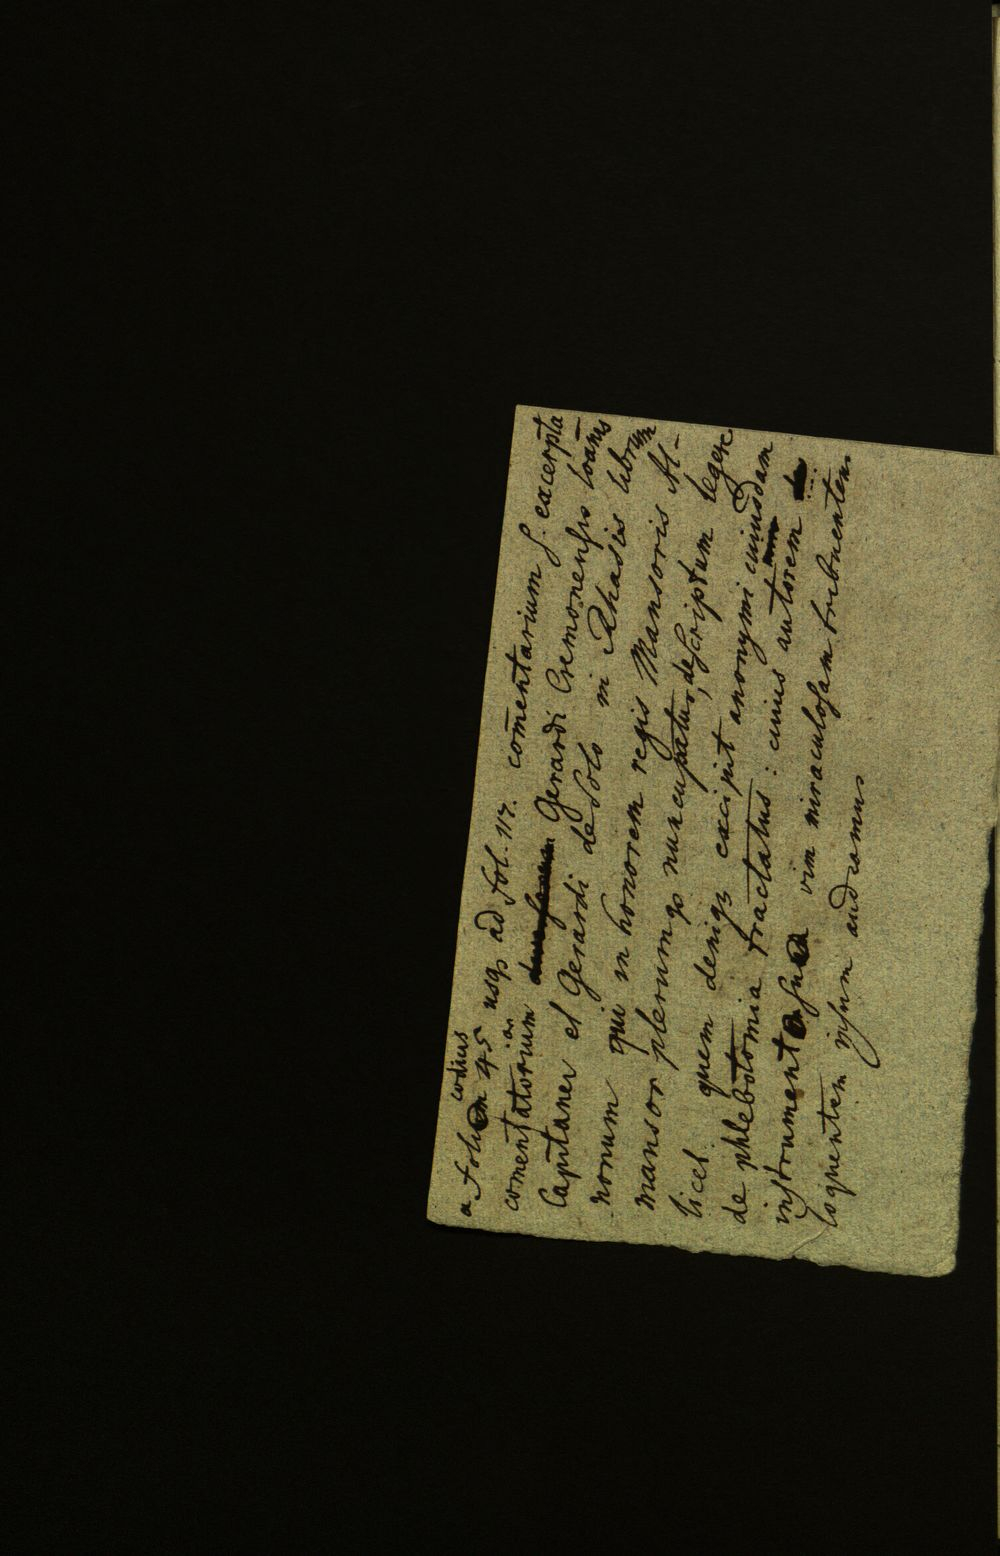 codicis
a folio 45 usq3 ad fol. 117. com̄entarium s. excerpta
com̄entatorium Gerardi Cremonensis Ioan̄is
Capitanei et Gerardi de Solo in Rhasis librum
nonum qui in honorem regis Mansoris Al-
mansor plerumq3 nuncupatur, descriptum legere
licet quem deniq3 excipit anonymi cuiusdam
de phlebotomia tractatus: cuius autorem
instrument suo vim miraculosam tribuentem
loquentem ipsum audiamus